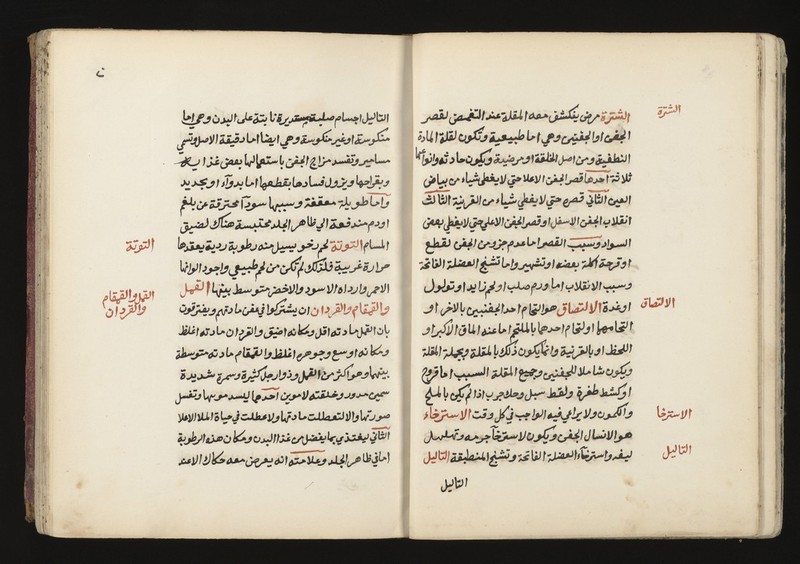 الشترة مرض ينكشف معه المقلة عند التغمض لقصر
الشترة
الجفن او الجفنين وهي اما طبيعية وتكون لقلة المادة
النطفية ومن اصل الخلقة او مرضية ويكون حادثه وانواعها
ثلاثة احدها قصر الجفن الاعلا حتى لا يغطى شياء من بياض
العين الثاني قصره حتى لا يغطى شياء من القرنية الثالث
انقلاب الجفن الاسفل او قصر الجفن الاعلى حتى لا يغطى بعض
السواد وسبب القصر اما عدم جزو من الجفن لقطع
او قرحة اكلة بعضه او تشمير واما تشنج العضلة الفاتحة
وسبب الانقلاب اما ورم صلب او لحم زايد او تولول
او غدة الالتصاق هو التحام احد الجفنين بالاخر او
الالتصاق
التحامهما او لتحام احدهما بالملتحم اما عند الماق الاكبر او
اللحظ او بالقرنية وانما يكون ذلك بالمقلة وبجملة المقلة
ويكون شاملا للجفنين وجميع المقلة السبب اما قروح
او كشط ظفرة ولقط سبل وحك جرب اذا لم يكن بالملح
والكمون ولا يراعى فيه الواجب في كل وقت الاسترخاء
الاسترخا
هو الانسال الجفن ويكون لاسترخآ جرمه وتهلهل
ليفه واسترخآء العضلة الفاتحة وتشنج المنطبقة التاليل
التاليل
التاليل
التاليل اجسام صلبة مستديرة نابتة على البدن وهي اما
منكوسة او غير منكوسة وهي ايضا اما دقيقة الاصل وتسمى
مسامير وتفسد مزاج الجفن باستعمالها بعض غذايه
وبقراحها ويزول فسادها بقطعها اما بدوآء او بحديد
واما طويلة معقفة وسببها سودآ محترقة عن بلغم
او دم مندفعة الى ظاهر الجلد محتبسة هناك لضيق
المسام التوتة لحم رخو يسيل منه رطوبة ردية يعقدها
التوتة
حرارة غريبة فلذلك لم تكن من لحم طبيعي واجود الوانها
الاحمر وارداه الاسود والاخضر متوسط بينهما القمل
والقمقام والقردان ان يشتركوا في عفن مادتهم ويفترقون
القمل والقمقام
والقردان
بان القمل مادته اقل ومكانه اضيق والقردان مادته اغلظ
ومكانه اوسع وجوهره اغلظ والقمقام مادته متوسطة
بينهما وهو اكثر من القمل وذو ارجل كثيرة وسمرة شديدة
سمين مدور وخلقته لامرين احدهما ليسد موبها وتفسل
صورتها والا لتعطلت مادتها ولا عطلت في حياة الملا الاعلا
الثاني ليغتذى بما يفضل من غذا البدن ومكان هذه الرطوبة
اما في ظاهر الجلد وعلامته انه يعرض معه حكاك الاعند